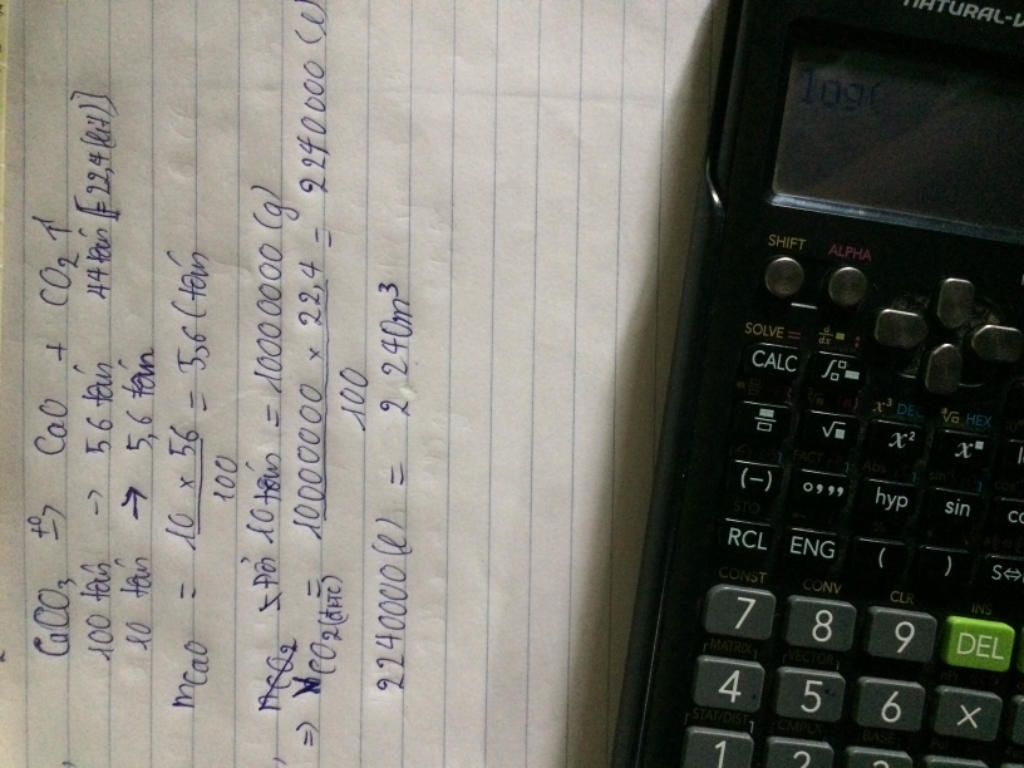 CaCO₃ →t° CaO + CO₂ ↑
100 tấn → 56 tấn 44 tấn [= 22,4 (lít)]
10 tấn → 5,6 tấn
mCaO = 10 × 56 / 100 = 5,6 (tấn
10 tấn = 10000000 (g)
=> VCO₂(đktc) = 10000000 × 22,4 / 100 = 2240000 (l)
2240000 (l) = 2 240m³
NATURAL-V
log(
SHIFT ALPHA
SOLVE =
CALC
x³ DEC HEX
x²
(-) hyp sin
STO
RCL ENG ( ) S⇔
CONST CONV CLR INS
7 8 9 DEL
MATRIX VECTOR
4 5 6 ×
STAT/DIST CMPLX BASE
1 2 3